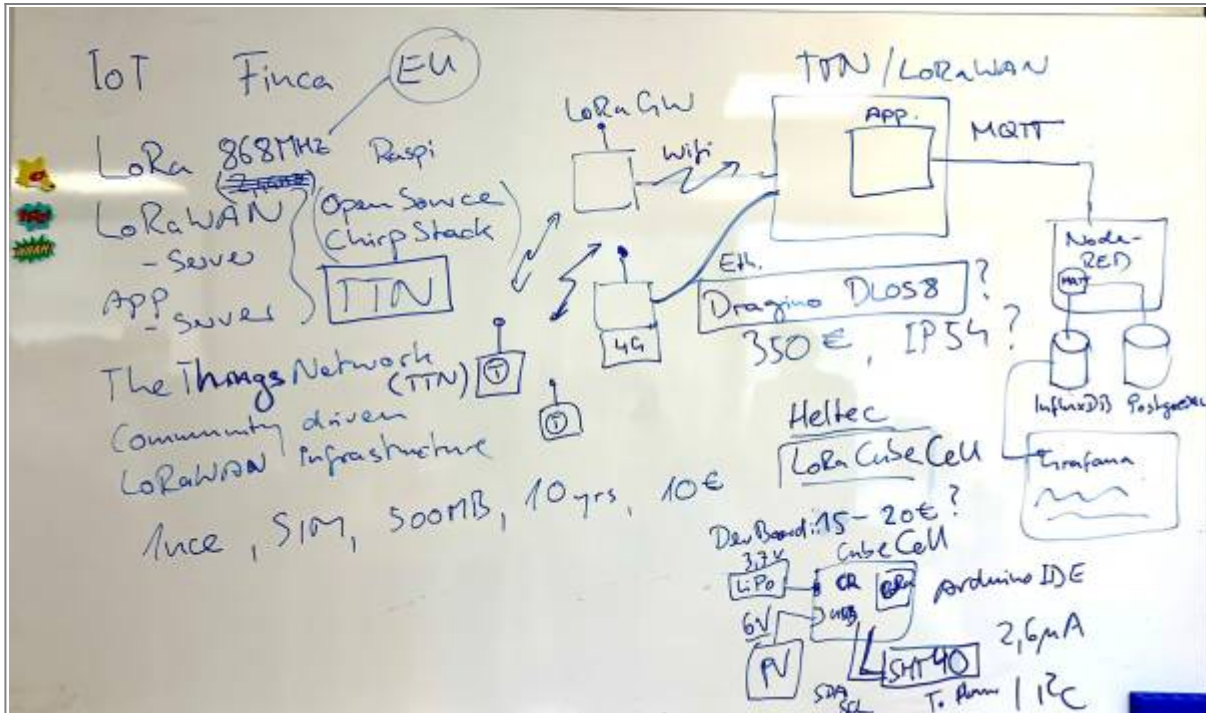 IoT Finca EU
LoRa 868MHz Raspi
LoRaWAN
- Server
(Open Source
ChirpStack)
App
- Server
TTN
The Things Network
(TTN)
Community driven
LoRaWAN Infrastructure
1nce, SIM, 500MB, 10yrs, 10€
T
T
LoRa GW
Wifi
4G
Eth.
TTN/LoRaWAN
App.
MQTT
Dragino DLOS8 ?
350€, IP54?
Node-
RED
InfluxDB
Grafana
Heltec
LoRa CubeCell
DevBoard: 15-20€?
CubeCell
3,7V
LiPo
6V
PV
USB
Arduino IDE
SHT40
2,6µA
SDA
SCL
I²C